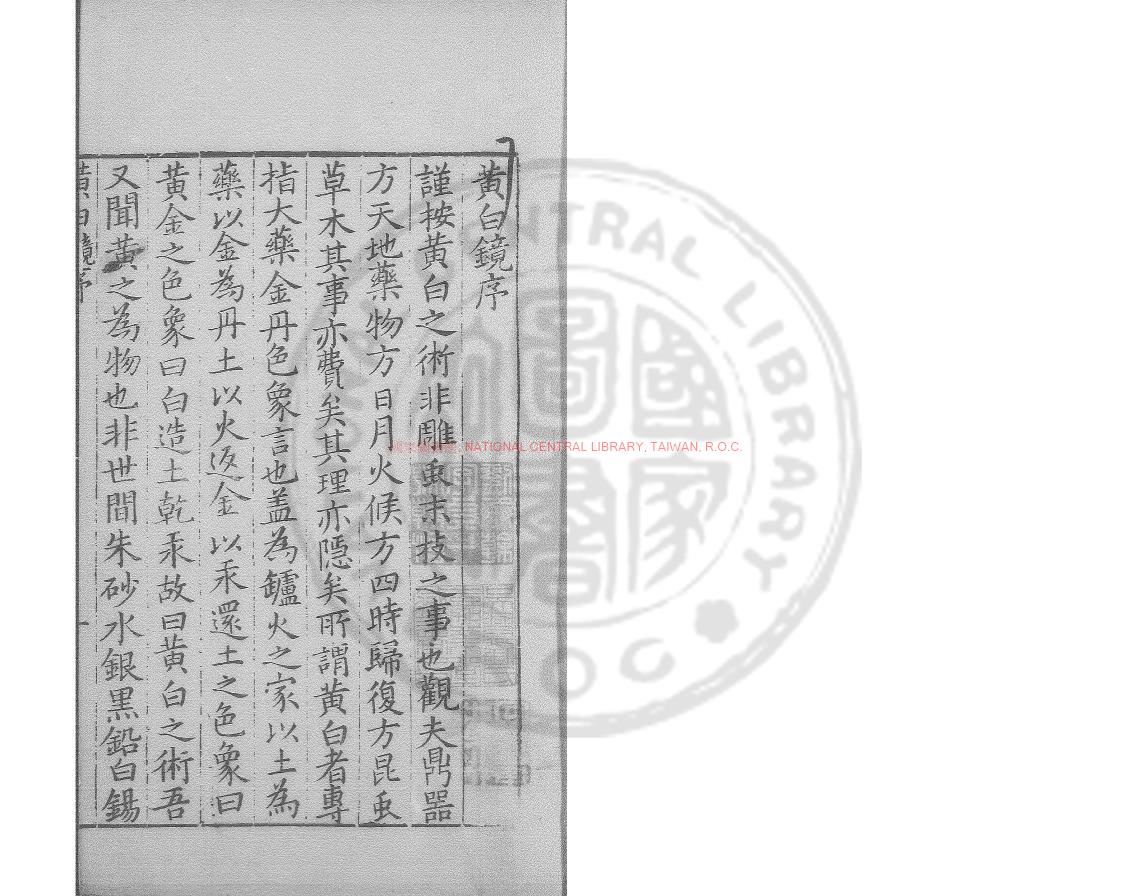 黄白鏡序
謹按黄白之術非雕䖝末技之事也觀夫鼎器
方天地藥物方日月火候方四時歸復方昆䖝
草木其事亦費矣其理亦隱矣所謂黄白者專
指大藥金丹色象言也盖為鑪火之家以土為
藥以金為丹土以火返金以汞還土之色象曰
黄金之色象曰白造土乾汞故曰黄白之術吾
又聞黄之為物也非世間朱砂水銀黑鉛白錫
黄白鏡序
一
NATIONAL CENTRAL LIBRARY, TAIWAN, R.O.C.
CENTRAL LIBRARY